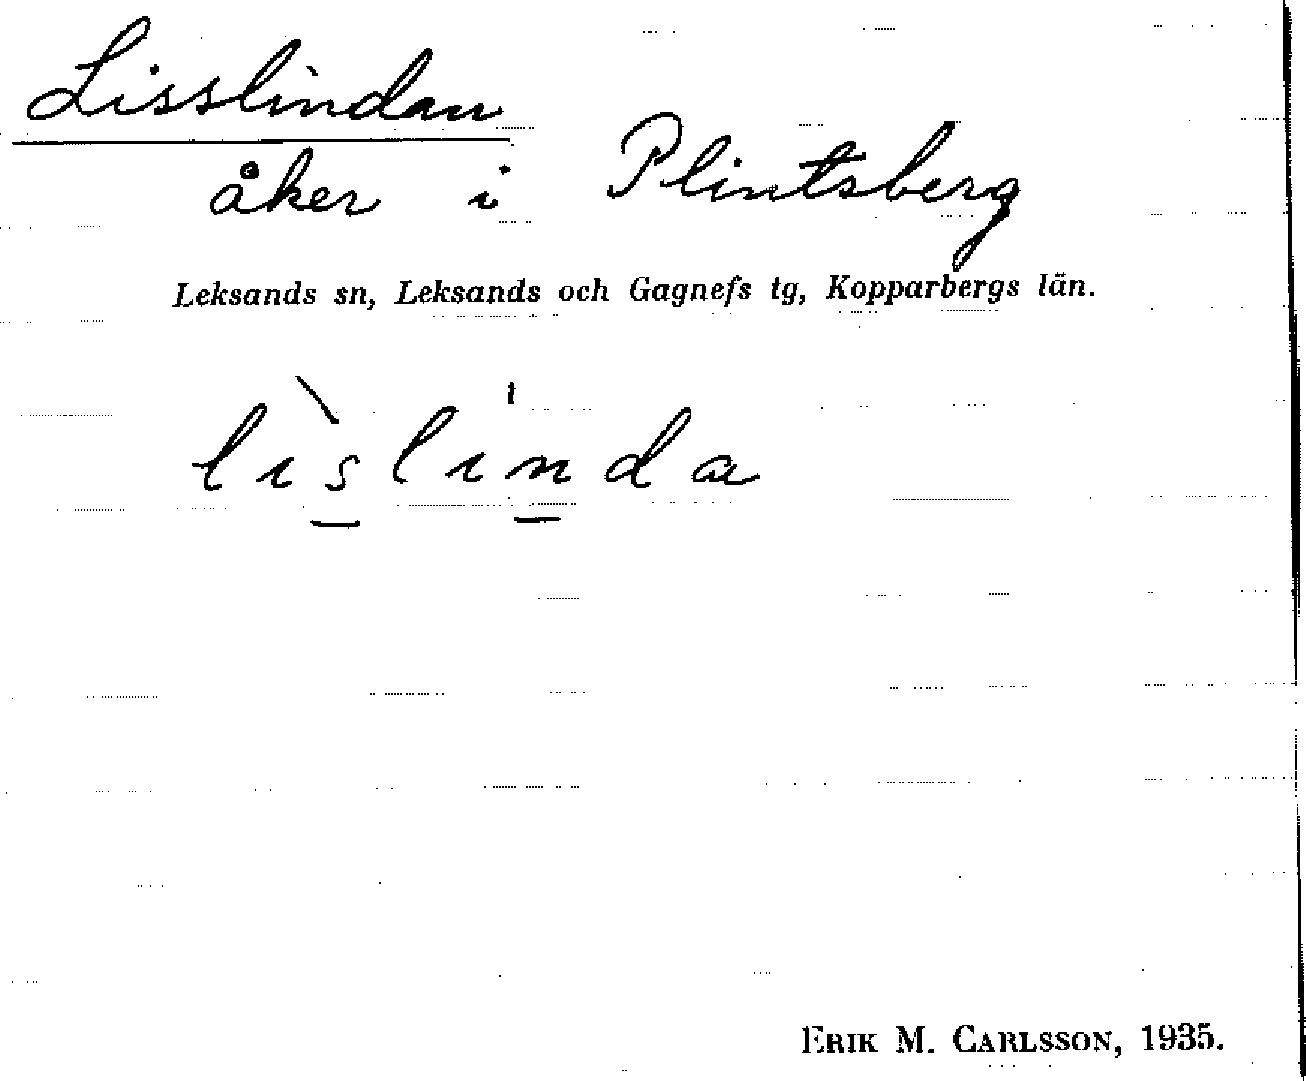 Lisslindan
åker i Plintsberg
Leksands sn, Leksands och Gagnefs tg, Kopparbergs län.
lìslinda
ERIK M. CARLSSON, 1935.